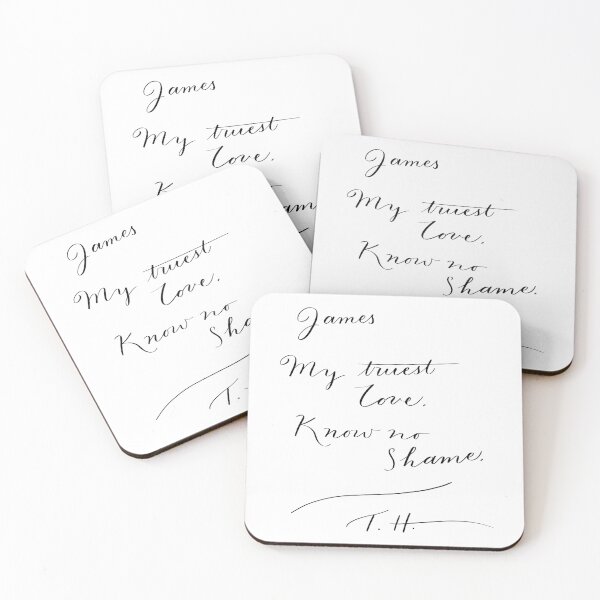 James
My truest
Love.
James
My truest
Love.
Know no
Shame.
James
My truest
Love.
Know no
Sha
T.
James
My truest
Love.
Know no
Shame.
T. H.